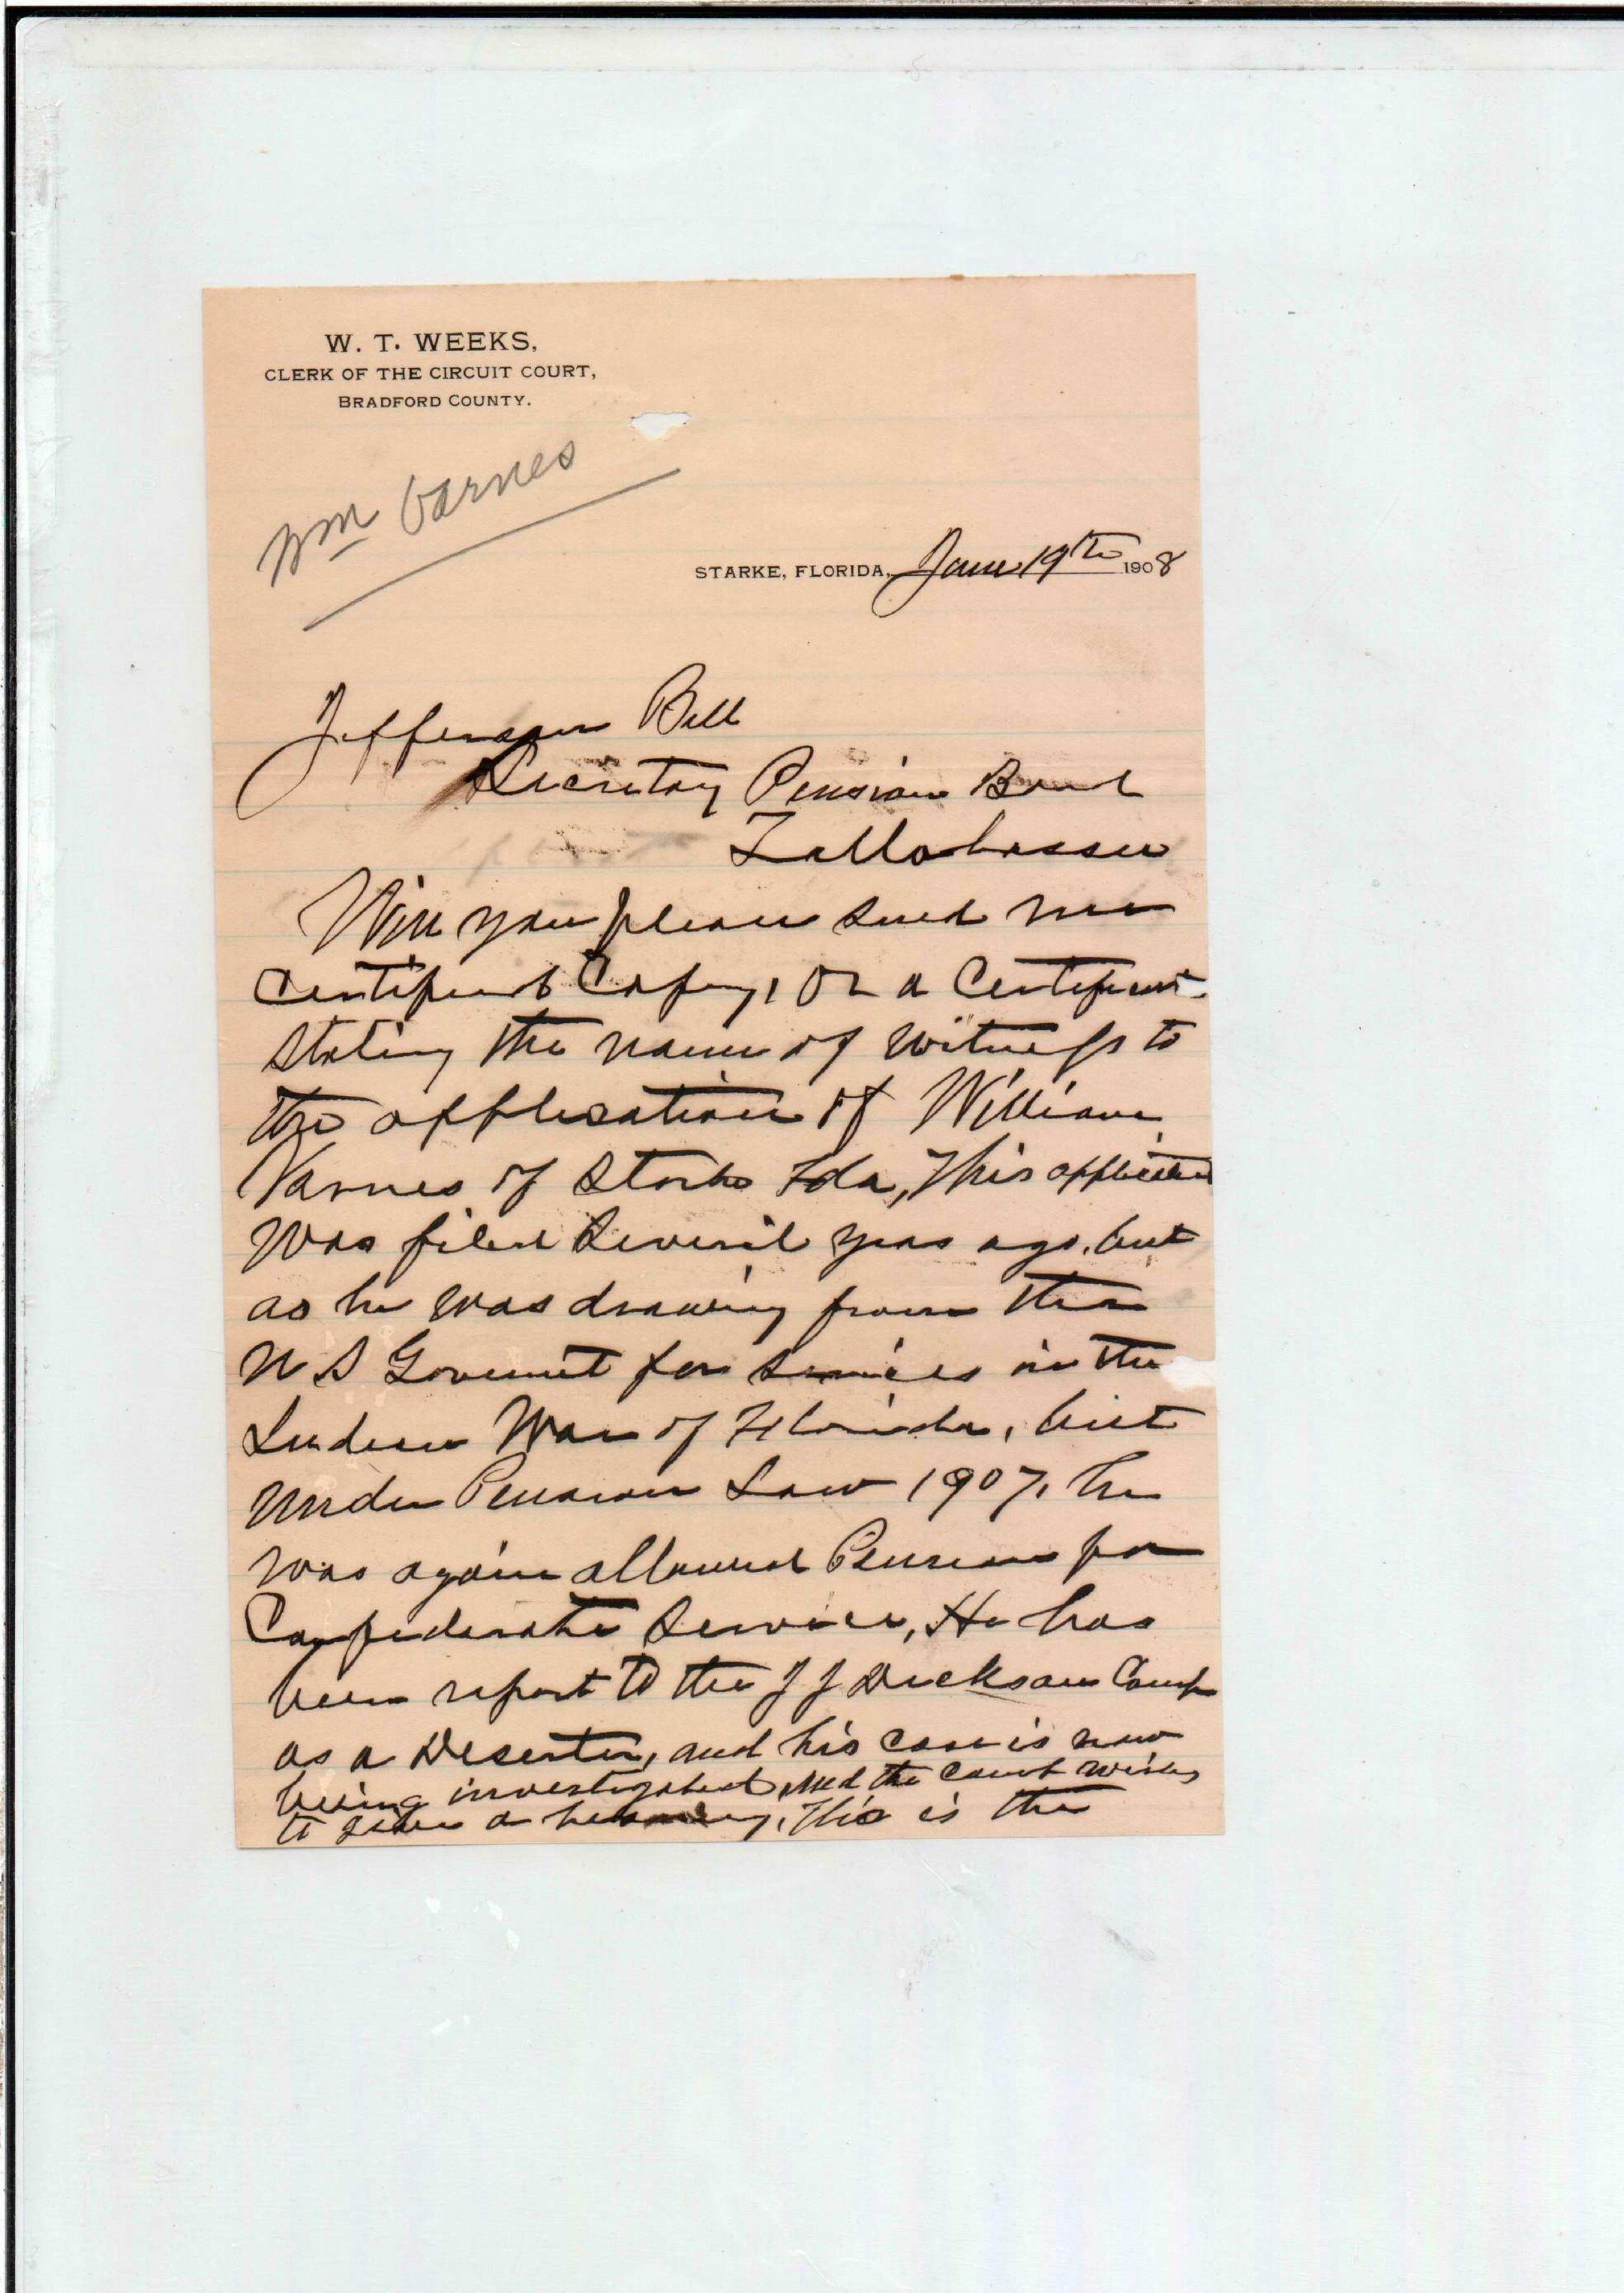 W. T. WEEKS,
CLERK OF THE CIRCUIT COURT,
BRADFORD COUNTY.
Wm Varnes
STARKE, FLORIDA, June 19th 1908
Jefferson Bell
Secretary Pension Board
Tallahassee
Will you please send me
Certificate Copy, or a Certificate
Stating the name of Witness to
the application of William
Varnes of Starke Fla, This application
Was filed Several years ago, but
as he was drawing from the
U S Goverment for Services in the
Indian War of Florida, but
under Pension Law 1907, he
was again allowed Pension for
Confederate Service, He has
been report to the J J Dickson Camp
as a Deserter, and his case is now
being investigated, and the Camp wishes
to give a hearing, This is the